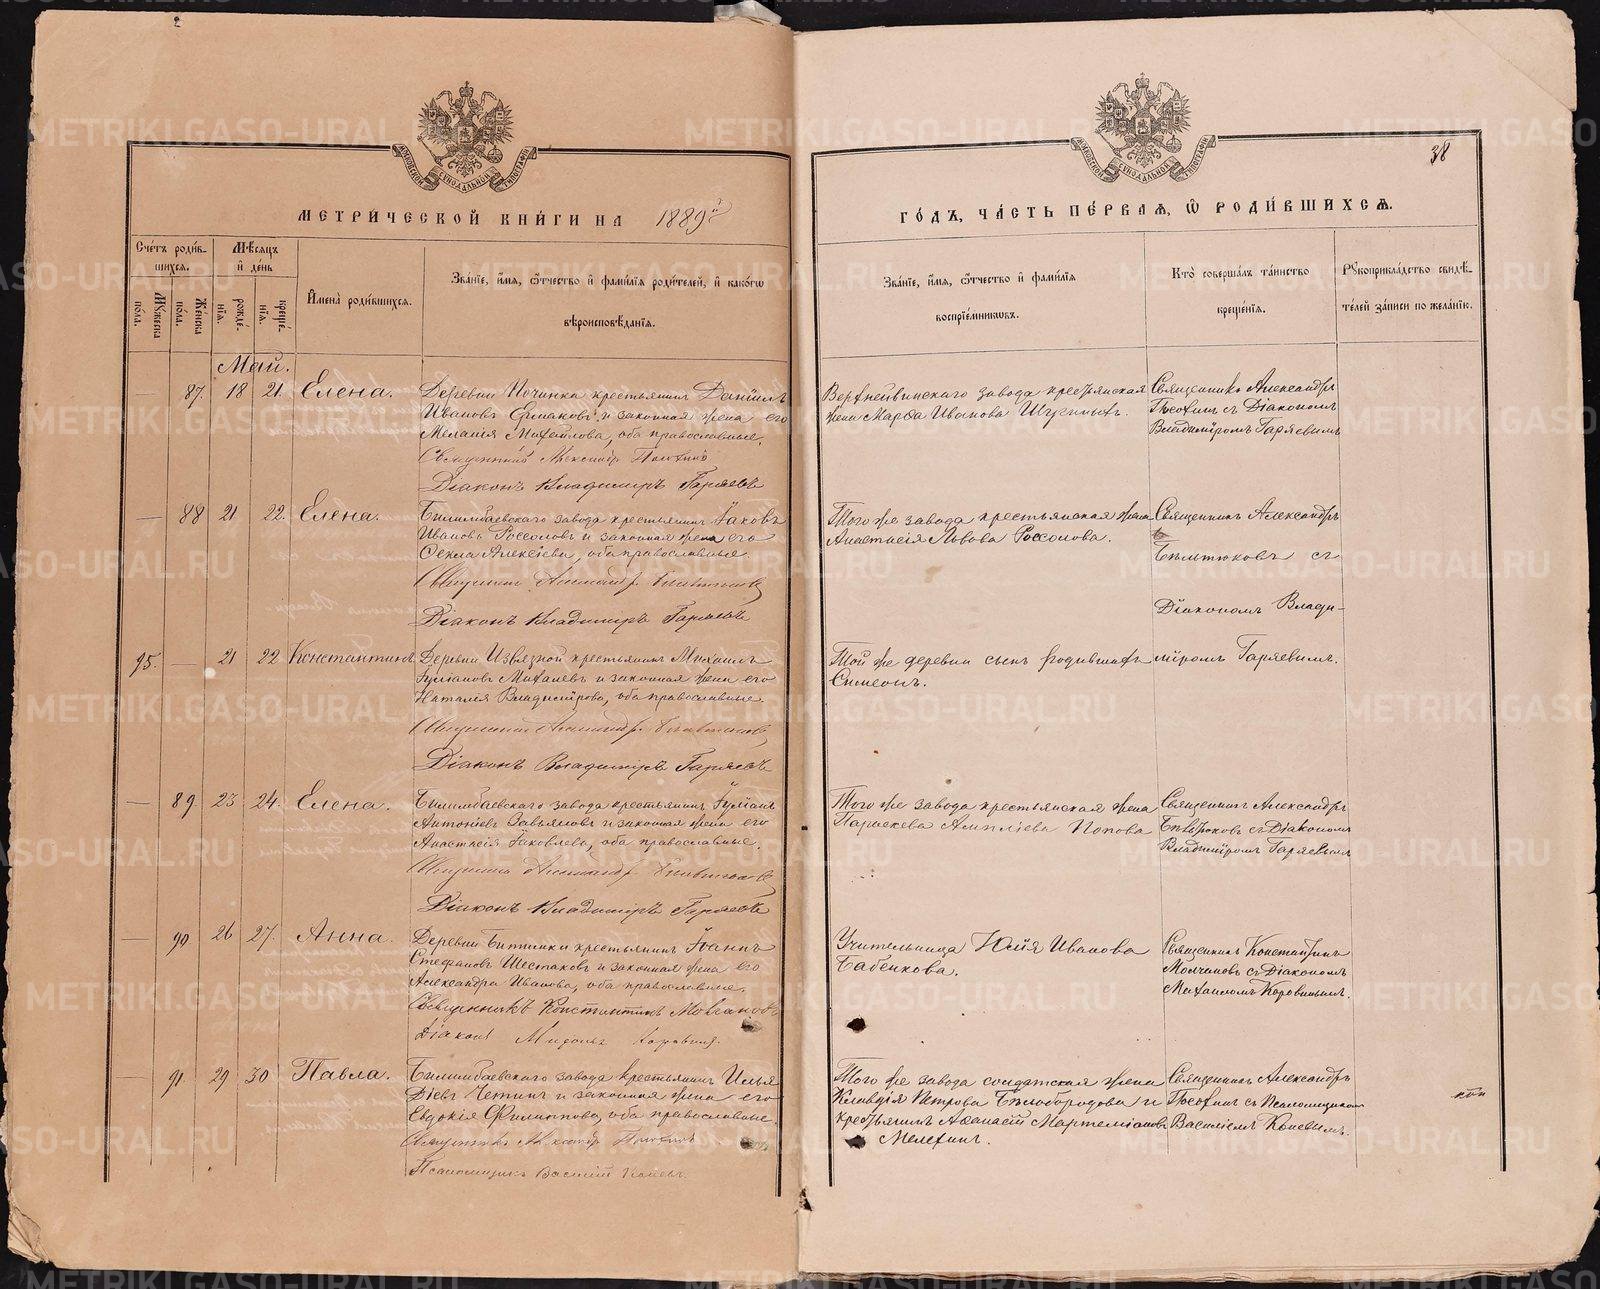 МОСКОВСКОЙ СѴНОДАЛЬНОЙ ТИПОГРАФІИ
МЕТРИ́ЧЕСКОЙ КНИ́ГИ НА 1889й
Сче́тъ роди́в-
шихся.
Мѣ́сяцъ
и҆ де́нь
Мꙋ́жеска
по́ла.
Же́нска
по́ла.
рожде́-
нїѧ.
креще́-
нїѧ.
И҆мена̀ роди́вшихсѧ.
Зва́нїе, и҆́мѧ, ѻ҆́тчество и҆ фами́лїѧ роди́телей, и҆ како́гѡ
вѣроисповѣ́данїѧ.
Май.
— 87. 18 21. Елена.
Деревни Починка крестьянин Даніил
Иванов Ермаков и законная жена его
Меланія Михайлова, оба православные.
Священник Александр
Діаконъ Владимиръ Гаряевъ
— 88 21 22. Елена.
Билимбаевскаго завода крестьянин Іаковъ
Иванов Россолов и законная жена его
Фекла Алексіева, оба православные.
Священник Александр
Діаконъ Владимиръ Гаряевъ
95. — 21 22 Константинъ
Деревни Извязной крестьянин Михаил
Іуліанов Михалев и законная жена его
Наталія Владимірова, оба православные.
Священник Александр
Діаконъ Владимиръ Гаряевъ
— 89. 23 24. Елена.
Билимбаевскаго завода крестьянин Іуліан
Антоніев Завьялов и законная жена его
Анастасія Іаковлева, оба православные.
Священник Александр
Діаконъ Владимиръ Гаряевъ
— 90 26 27. Анна.
Деревни Битимки крестьянин Іоаннъ
Стефанов Шестаков и законная жена его
Александра Иванова, оба православные.
Священникъ Константинъ Молчановъ
Діакон Михаилъ Коровинъ
— 91 29 30 Павла.
Билимбаевскаго завода крестьянин Илья
Діев Четин и законная жена его
Евдокія Филиппова, оба православные.
Священникъ Александр
Псаломщикъ Василій Конев.
38
МОСКОВСКОЙ СѴНОДАЛЬНОЙ ТИПОГРАФІИ
ГО́ДЪ, ЧА́СТЬ ПЕ́РВАѦ, Ѡ҆ РОДИ́ВШИХСѦ.
Зва́нїе, и҆́мѧ, ѻ҆́тчество и҆ фами́лїѧ
воспрїе́мникѡвъ.
Кто̀ соверша́лъ та́инство
креще́нїѧ.
Рꙋкоприкла́дство свидѣ́-
телей за́писи по жела́нїю.
Верхнейвинскаго завода крестьянская
жена Марфа Иванова
Священникъ Александръ
с Діаконом
Владиміромъ Гаряевым
Того же завода крестьянская жена
Анастасія Львова Россолова.
Священник Александръ
Бѣльтюковъ съ
Діаконом Влади-
Той же деревни сын родившихъ
Симеонъ.
міромъ Гаряевымъ.
Того же завода крестьянская жена
Параскева Ампліева Попова
Священник Александръ
Бѣльтюков с Діаконом
Владиміромъ Гаряевым
Учительница Юлія Иванова
Бабенкова.
Священник Константин
Молчанов с Діаконом
Михаилом Коровиным.
Того же завода солдатская жена
Клавдія Петрова Бѣлобородова и
крестьянин Афанасій Мартеміанов
Мелехин.
Священник Александръ
с Псаломщиком
Василіем Коневымъ.
METRIKI.GASO-URAL.RU